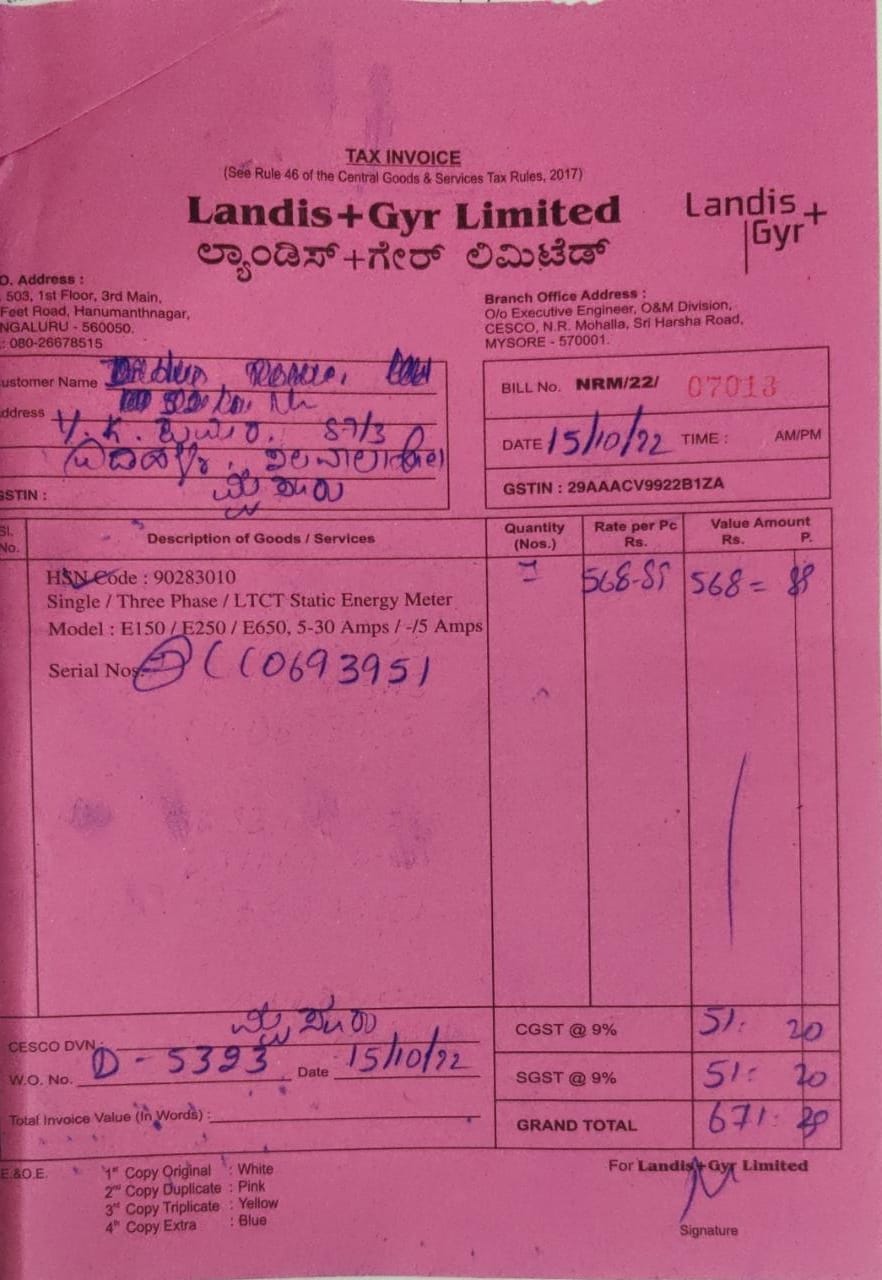 TAX INVOICE
(See Rule 46 of the Central Goods & Services Tax Rules, 2017)
Landis+Gyr Limited
ಲ್ಯಾಂಡಿಸ್+ಗೇರ್ ಲಿಮಿಟೆಡ್
Landis
Gyr+
O. Address :
503, 1st Floor, 3rd Main,
Feet Road, Hanumanthnagar,
NGALURU - 560050.
: 080-26678515
Branch Office Address :
O/o Executive Engineer, O&M Division,
CESCO, N.R. Mohalla, Sri Harsha Road,
MYSORE - 570001.
ustomer Name
ddress
87/3
GSTIN :
ಮೈಸೂರು
BILL No. NRM/22/ 07013
DATE 15/10/22 TIME : AM/PM
GSTIN : 29AAACV9922B1ZA
Sl. No. Description of Goods / Services Quantity (Nos.) Rate per Pc Rs. Value Amount Rs. P.
HSN Code : 90283010
Single / Three Phase / LTCT Static Energy Meter
Model : E150 / E250 / E650, 5-30 Amps / -/5 Amps
568 =
Serial Nos. 0693951
CESCO DVN.: ಮೈಸೂರು
W.O. No. D - 5393 Date 15/10/22
Total Invoice Value (In Words) :
CGST @ 9% 51: 20
SGST @ 9% 51: 20
GRAND TOTAL 671:
E.&O.E.
1st Copy Original : White
2nd Copy Duplicate : Pink
3rd Copy Triplicate : Yellow
4th Copy Extra : Blue
For Landis+Gyr Limited
Signature